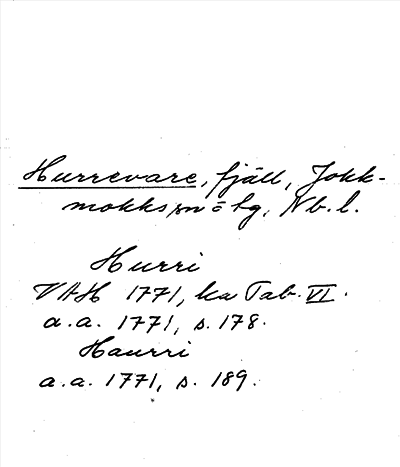 Hurrevare, fjäll, Jokk-
mokks sn = tg, Nb. l.
Hurri
VAH 1771, ka Tab. VI.
a.a. 1771, s. 178.
Haurri
a.a. 1771, s. 189.